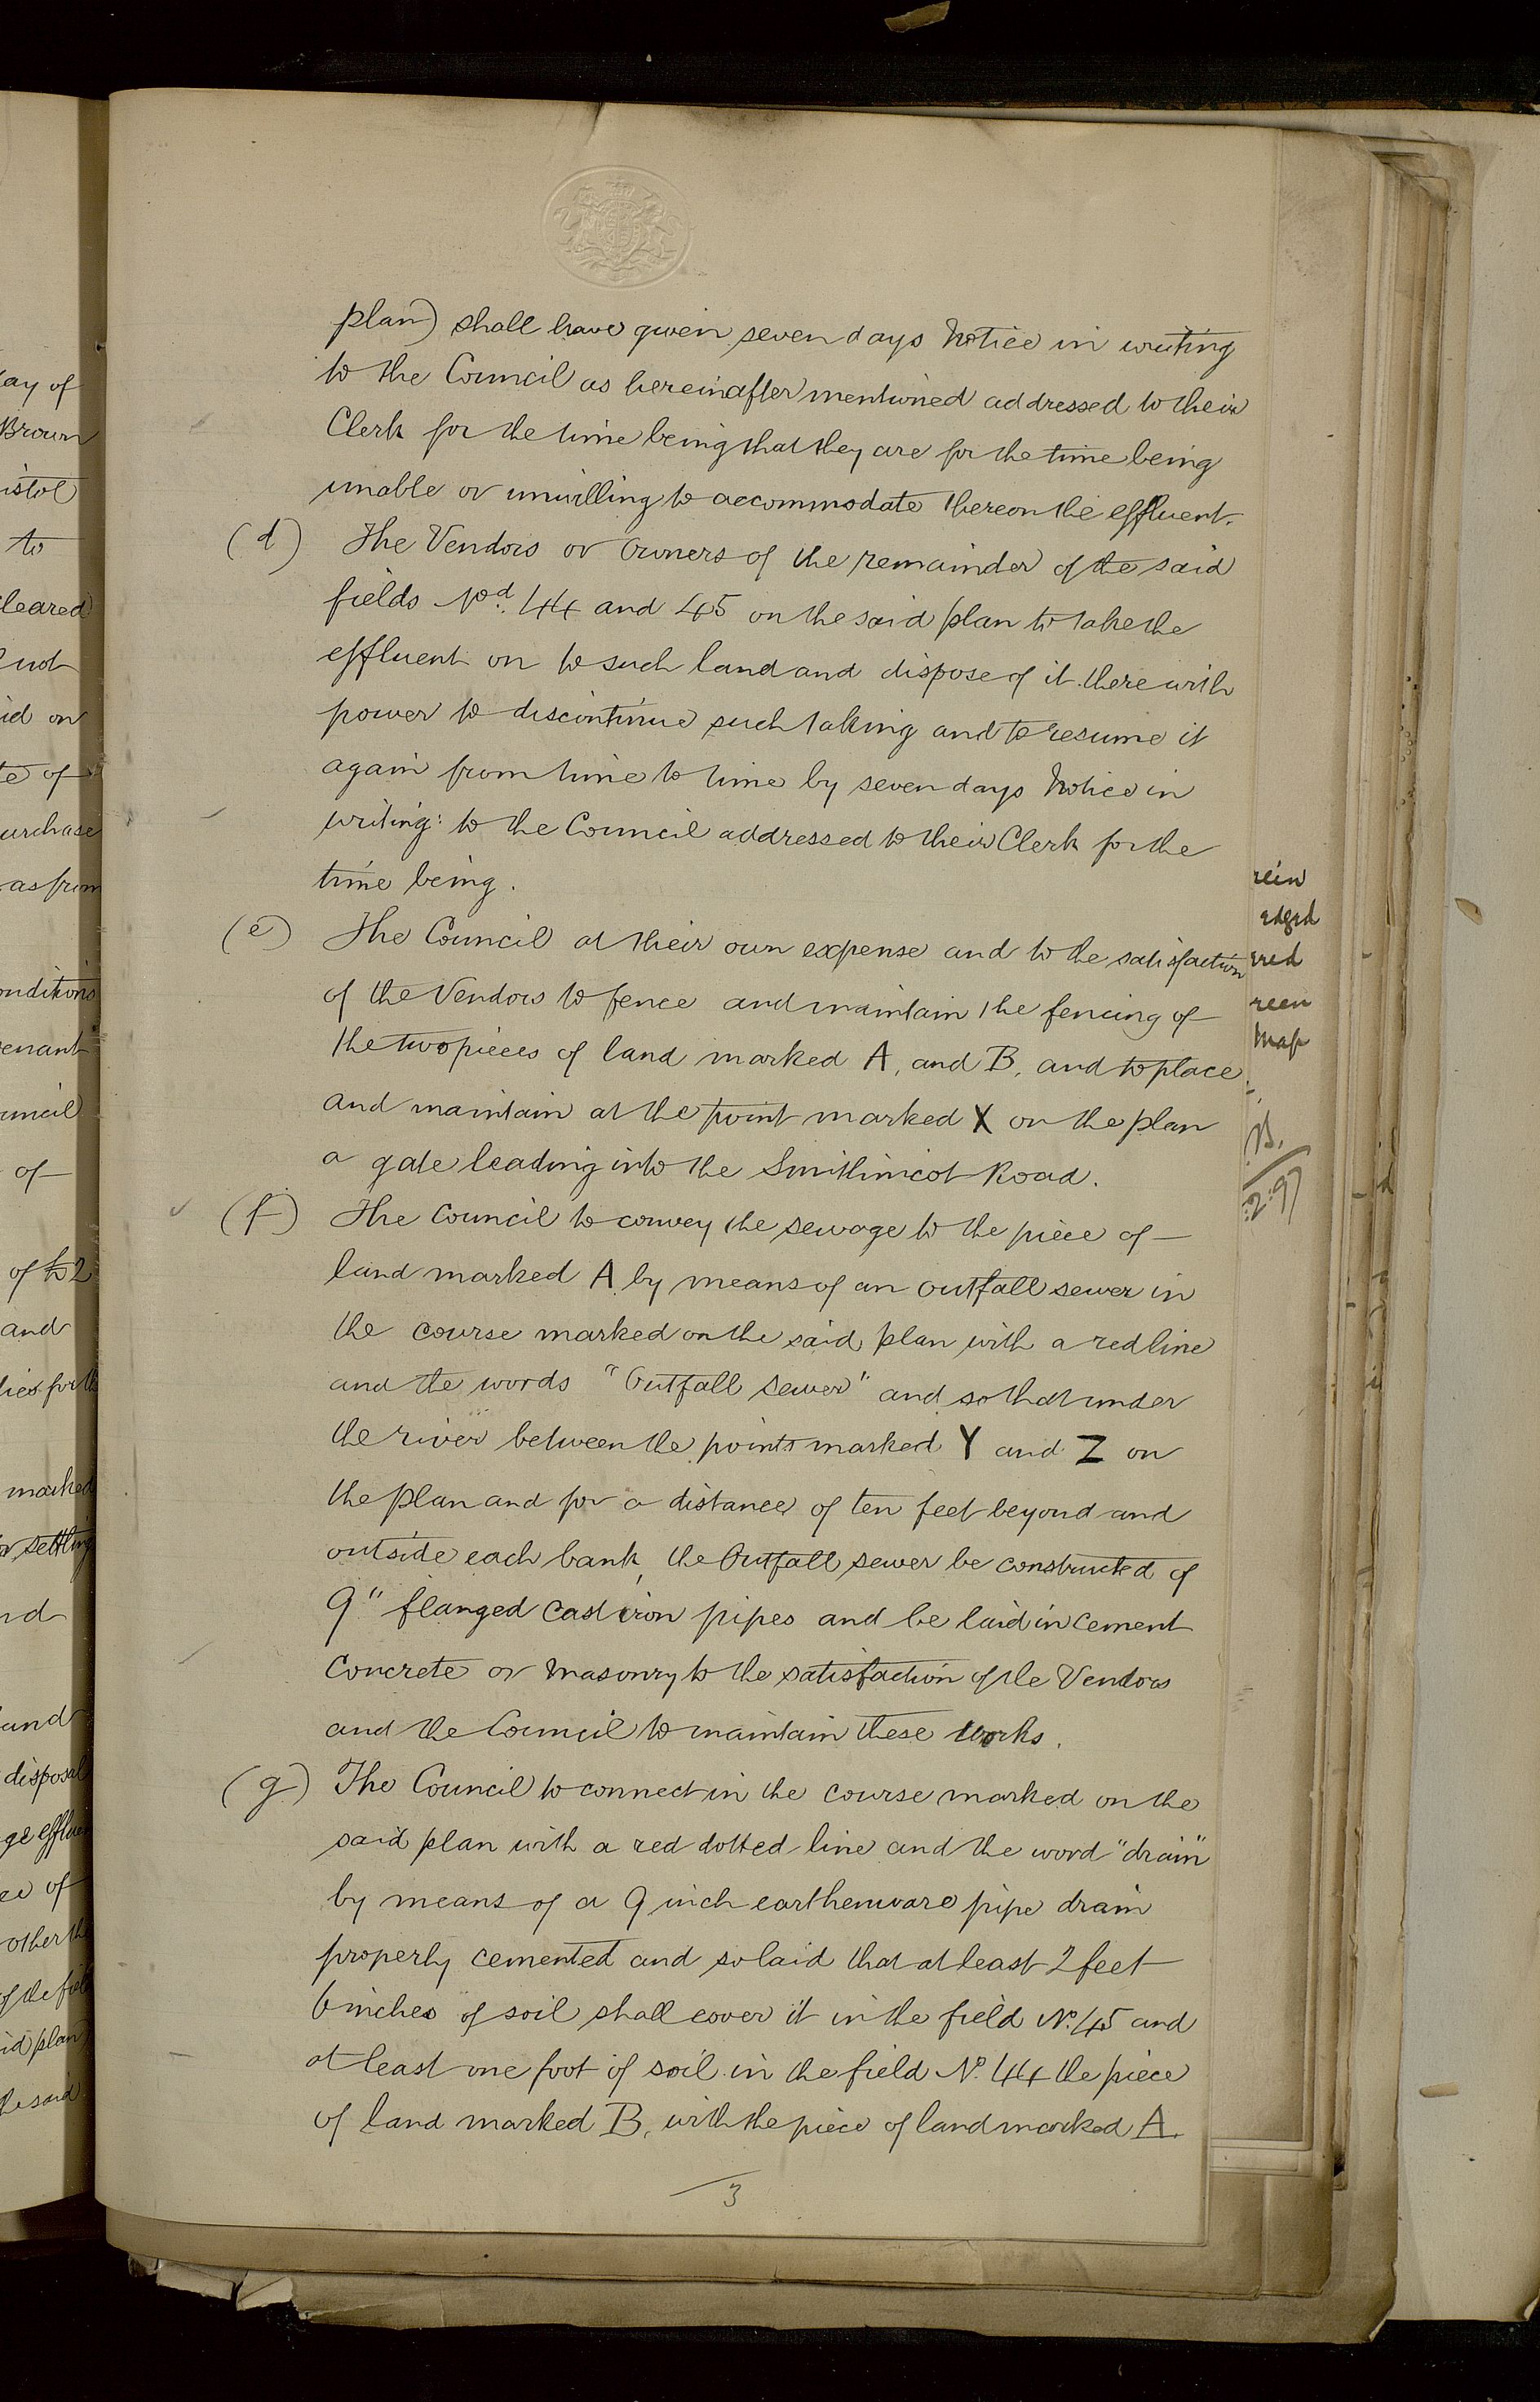 plan) shall have given seven days Notice in writing
to the Council as hereinafter mentioned addressed to their
Clerk for the time being that they are for the time being
unable or unwilling to accommodate thereon the effluent.
(d) The Vendors or Owners of the remainder of the said
fields Nod. 44 and 45 on the said plan to take the
effluent on to such land and dispose of it there with
power to discontinue such taking and to resume it
again from time to time by seven days Notice in
writing: to the Council addressed to their Clerk for the
time being.
(e) The Council at their own expense and to the satisfaction
of the Vendors to fence and maintain the fencing of
the two pieces of land marked A, and B, and to place
and maintain at the point marked X on the plan
a gate leading into the Road.
(f) The Council to convey the sewage to the piece of
land marked A by means of an outfall sewer in
the course marked on the said plan with a red line
and the words "Outfall Sewer" and so that under
the river between the points marked Y and Z on
the plan and for a distance of ten feet beyond and
outside each bank, the Outfall sewer be constructed of
9" flanged cast iron pipes and be laid in cement
Concrete or Masonry to the satisfaction of the Vendors
and the Council to maintain these works.
(g) The Council to connect in the course marked on the
said plan with a red dotted line and the word "drain"
by means of a 9 inch earthenware pipe drain
properly cemented and so laid that at least 2 feet
6 inches of soil shall cover it in the field No. 45 and
at least one foot of soil in the field No. 44 the piece
of land marked B, with the piece of land marked A.
3
ay of
Brown
istol
to
leared
id on
te of
urchase
as from
onditions
enant
uncil
of
of to 2
and
marked
settling
nd
and
disposal
of
other the
of the field
id plan
the said
rein
edged
red
reen
Map
B.
2.97